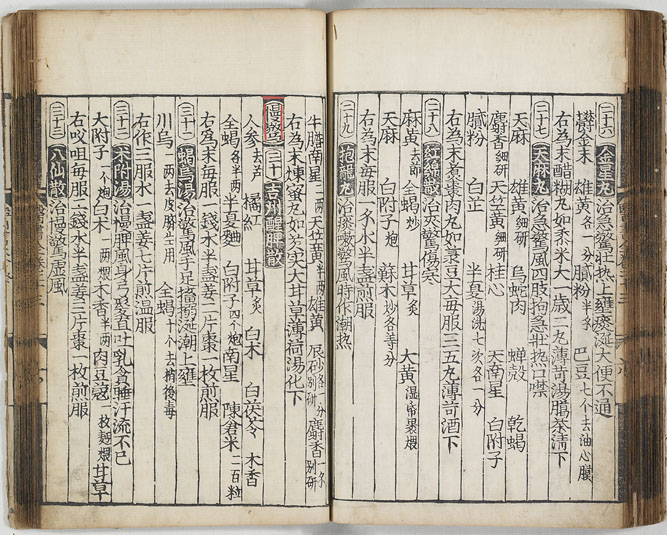 二十六 金星丸 治急驚壮热上壅痰涎大便不通
欝金末 雄黄各一分 膩粉半分 巴豆七个去油心膜
右為末醋糊丸如黍米大一歲二丸薄苛湯臈茶清下
二十七 天麻丸 治急驚風四肢拘急壮热口噤
天麻 雄黄細研 烏蛇肉 蝉殻 乾蝎
麝香細研 天竺黄細研 桂心 天南星 白附子
膩粉 白芷 半夏湯洗七次各一分
右為末煮棗肉丸如菉豆大每服三五丸薄苛酒下
二十八 治夾驚傷寒
麻黄去節 全蝎炒 甘草炙 大黄湿帋裹煨
天麻 白附子炮 蘇木炒各等分
右為末每服一水半盞煎服
二十九 抱龍丸 治痰嗽驚風時作潮热
牛膽南星二两 天竺黄半两 雄黄 辰砂各一分別研 麝香一別研
右為末煉蜜丸如芡实大甘草薄荷湯化下
慢驚 三十 醒脾散
人参去芦 橘紅 甘草炙 白术 白茯苓 木香
全蝎各半两 半夏麯 白附子四个炮 南星 陳倉米二百粒
右為末每服一錢水半盞姜二片棗一枚煎服
三十一 蝎烏湯 治慢驚風手足搐搦涎潮上壅
川烏一两去皮臍生用 全蝎十个去梢後毒
右作三服水一盞姜七片煎温服
三十二 术附湯 治慢脾風身弓髮直吐乳貪睡汗流不已
大附子一个炮 白术一两煨 木香半两 肉豆蔲一枚麵煨 甘草
右㕮咀每服二錢水半盞姜三片棗一枚煎服
三十三 八仙散 治慢驚虚風